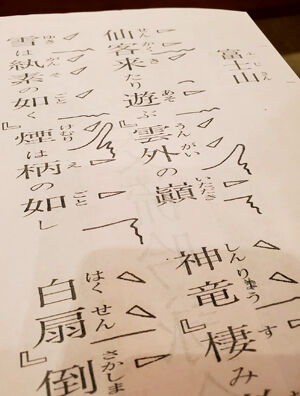 富士山
せんかくきあそうんがいいただき
仙客来たり遊ぶ』雲外の巓
す
神竜』棲み
ゆきそごとけむりえごと
雪は紈素の如く』煙は柄の如し
はくせんさかしま
白扇』倒